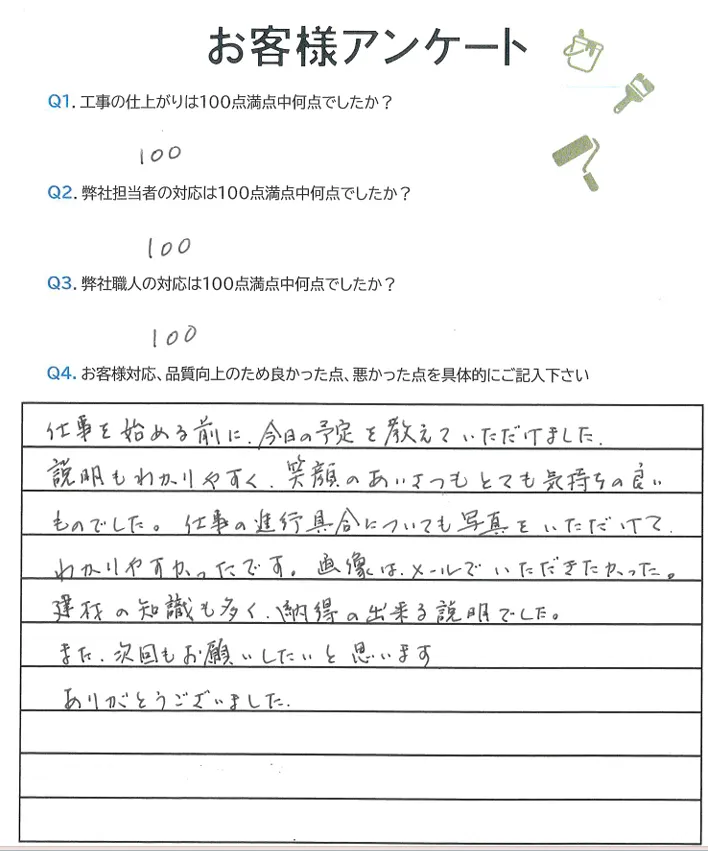 お客様アンケート
Q1. 工事の仕上がりは100点満点中何点でしたか？
100
Q2. 弊社担当者の対応は100点満点中何点でしたか？
100
Q3. 弊社職人の対応は100点満点中何点でしたか？
100
Q4. お客様対応、品質向上のため良かった点、悪かった点を具体的にご記入下さい
仕事を始める前に、今日の予定を教えていただけました。
説明もわかりやすく、笑顔のあいさつもとても気持ちの良い
ものでした。仕事の進行具合についても写真をいただけて、
わかりやすかったです。画像は、メールでいただきたかった。
建材の知識も多く、納得の出来る説明でした。
また、次回もお願いしたいと思います
ありがとうございました。